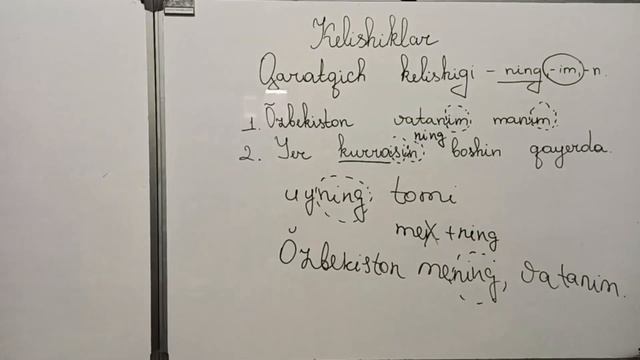 Kelishiklar
Qaratqich kelishigi - ning, -im, -n.
1. Õzbekiston vatanim manim
ning
2. Yer kurrasin boshin qayerda.
uyning tomi
men +ning
Õzbekiston mening, vatanim.